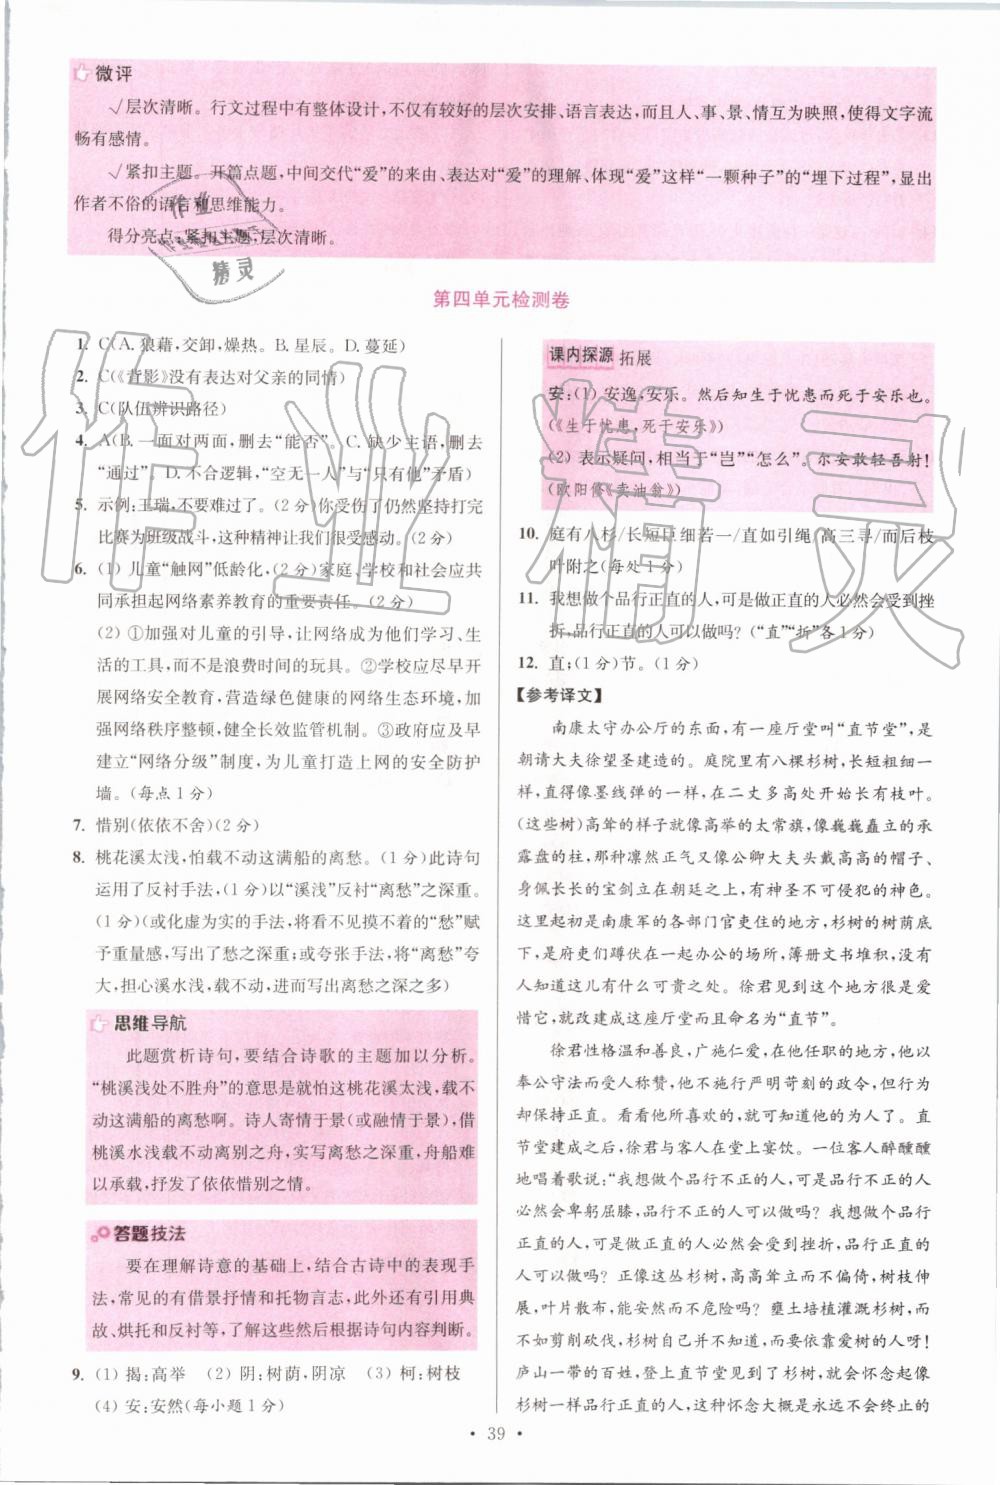 微评
√层次清晰。行文过程中有整体设计,不仅有较好的层次安排、语言表达,而且人、事、景、情互为映照,使得文字流
畅有感情。
√紧扣主题。开篇点题,中间交代“爱”的来由、表达对“爱”的理解、体现“爱”这样“一颗种子”的“埋下过程”,显出
作者不俗的语言和思维能力。
得分亮点:紧扣主题,层次清晰。
第四单元检测卷
1. C(A. 狼藉,交卸,燥热。B. 星辰。D. 蔓延)
2. C(《背影》没有表达对父亲的同情)
3. C(队伍辨识路径)
4. A(B. 一面对两面,删去“能否”。C. 缺少主语,删去
“通过”。D. 不合逻辑,“空无一人”与“只有他”矛盾)
5. 示例:王瑞,不要难过了。(2 分)你受伤了仍然坚持打完
比赛为班级战斗,这种精神让我们很受感动。(2 分)
6. (1) 儿童“触网”低龄化,(2 分)家庭、学校和社会应共
同承担起网络素养教育的重要责任。(2 分)
(2) ①加强对儿童的引导,让网络成为他们学习、生
活的工具,而不是浪费时间的玩具。②学校应尽早开
展网络安全教育,营造绿色健康的网络生态环境,加
强网络秩序整顿,健全长效监管机制。③政府应及早
建立“网络分级”制度,为儿童打造上网的安全防护
墙。(每点 1 分)
7. 惜别(依依不舍)(2 分)
8. 桃花溪太浅,怕载不动这满船的离愁。(1 分)此诗句
运用了反衬手法,(1 分)以“溪浅”反衬“离愁”之深重。
(1 分)(或化虚为实的手法,将看不见摸不着的“愁”赋
予重量感,写出了愁之深重;或夸张手法,将“离愁”夸
大,担心溪水浅,载不动,进而写出离愁之深之多)
思维导航
此题赏析诗句,要结合诗歌的主题加以分析。
“桃溪浅处不胜舟”的意思是就怕这桃花溪太浅,载不
动这满船的离愁啊。诗人寄情于景(或融情于景),借
桃溪水浅载不动离别之舟,实写离愁之深重,舟船难
以承载,抒发了依依惜别之情。
答题技法
要在理解诗意的基础上,结合古诗中的表现手
法,常见的有借景抒情和托物言志,此外还有引用典
故、烘托和反衬等,了解这些然后根据诗句内容判断。
9. (1) 揭:高举 (2) 阴:树荫,阴凉 (3) 柯:树枝
(4) 安:安然(每小题 1 分)
课内探源 拓展
安:(1) 安逸,安乐。然后知生于忧患而死于安乐也。
(《生于忧患,死于安乐》)
(2) 表示疑问,相当于“岂”“怎么”。尔安敢轻吾射!
(欧阳修《卖油翁》)
10. 庭有八杉/长短巨细若一/直如引绳/高三寻/而后枝
叶附之(每处 1 分)
11. 我想做个品行正直的人,可是做正直的人必然会受到挫
折,品行正直的人可以做吗?(“直”“折”各 1 分)
12. 直;(1 分)节。(1 分)
【参考译文】
南康太守办公厅的东面,有一座厅堂叫“直节堂”,是
朝请大夫徐望圣建造的。庭院里有八棵杉树,长短粗细一
样,直得像墨线弹的一样,在二丈多高处开始长有枝叶。
(这些树)高耸的样子就像高举的太常旗,像巍巍矗立的承
露盘的柱,那种凛然正气又像公卿大夫头戴高高的帽子、
身佩长长的宝剑立在朝廷之上,有神圣不可侵犯的神色。
这里起初是南康军的各部门官吏住的地方,杉树的树荫底
下,是府吏们蹲伏在一起办公的场所,薄册文书堆积,没有
人知道这儿有什么可贵之处。徐君见到这个地方很是爱
惜它,就改建成这座厅堂而且命名为“直节”。
徐君性格温和善良,广施仁爱,在他任职的地方,他以
奉公守法而受人称赞,他不施行严明苛刻的政令,但行为
却保持正直。看看他所喜欢的,就可以知道他的为人了。直
节堂建成之后,徐君与客人在堂上宴饮。一位客人醉醺醺
地唱着歌说:“我想做品行不正的人吗?品行不正的人
必然会卑躬屈膝,品行不正的人可以做吗?我想做品行
正直的人,可是做正直的人必然会受到挫折,品行正直的
人可以做吗?正像这丛杉树,高高耸立而不偏倚,树枝伸
展,叶片散布,能安然而不危险吗?壅土培植灌溉杉树,而
不如剪削砍伐,杉树自己并不知道,而要依靠爱树的人呀!
庐山一带的百姓,登上直节堂见到了杉树,就会怀念起像
杉树一样品行正直的人,这种怀念大概是永远不会终止的
• 39 •
作业精灵
作业
精灵